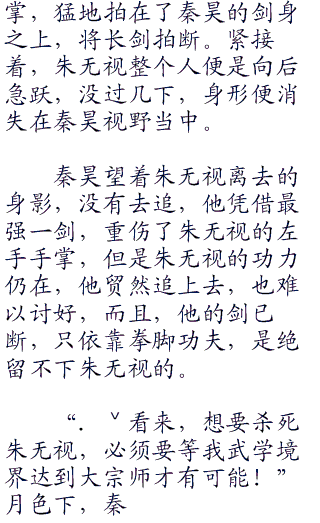 掌，猛地拍在了秦昊的剑身
之上，将长剑拍断。紧接
着，朱无视整个人便是向后
急跃，没过几下，身形便消
失在秦昊视野当中。
秦昊望着朱无视离去的
身影，没有去追，他凭借最
强一剑，重伤了朱无视的左
手手掌，但是朱无视的功力
仍在，他贸然追上去，也难
以讨好，而且，他的剑已
断，只依靠拳脚功夫，是绝
留不下朱无视的。
“．ˇ看来，想要杀死
朱无视，必须要等我武学境
界达到大宗师才有可能！”
月色下，秦